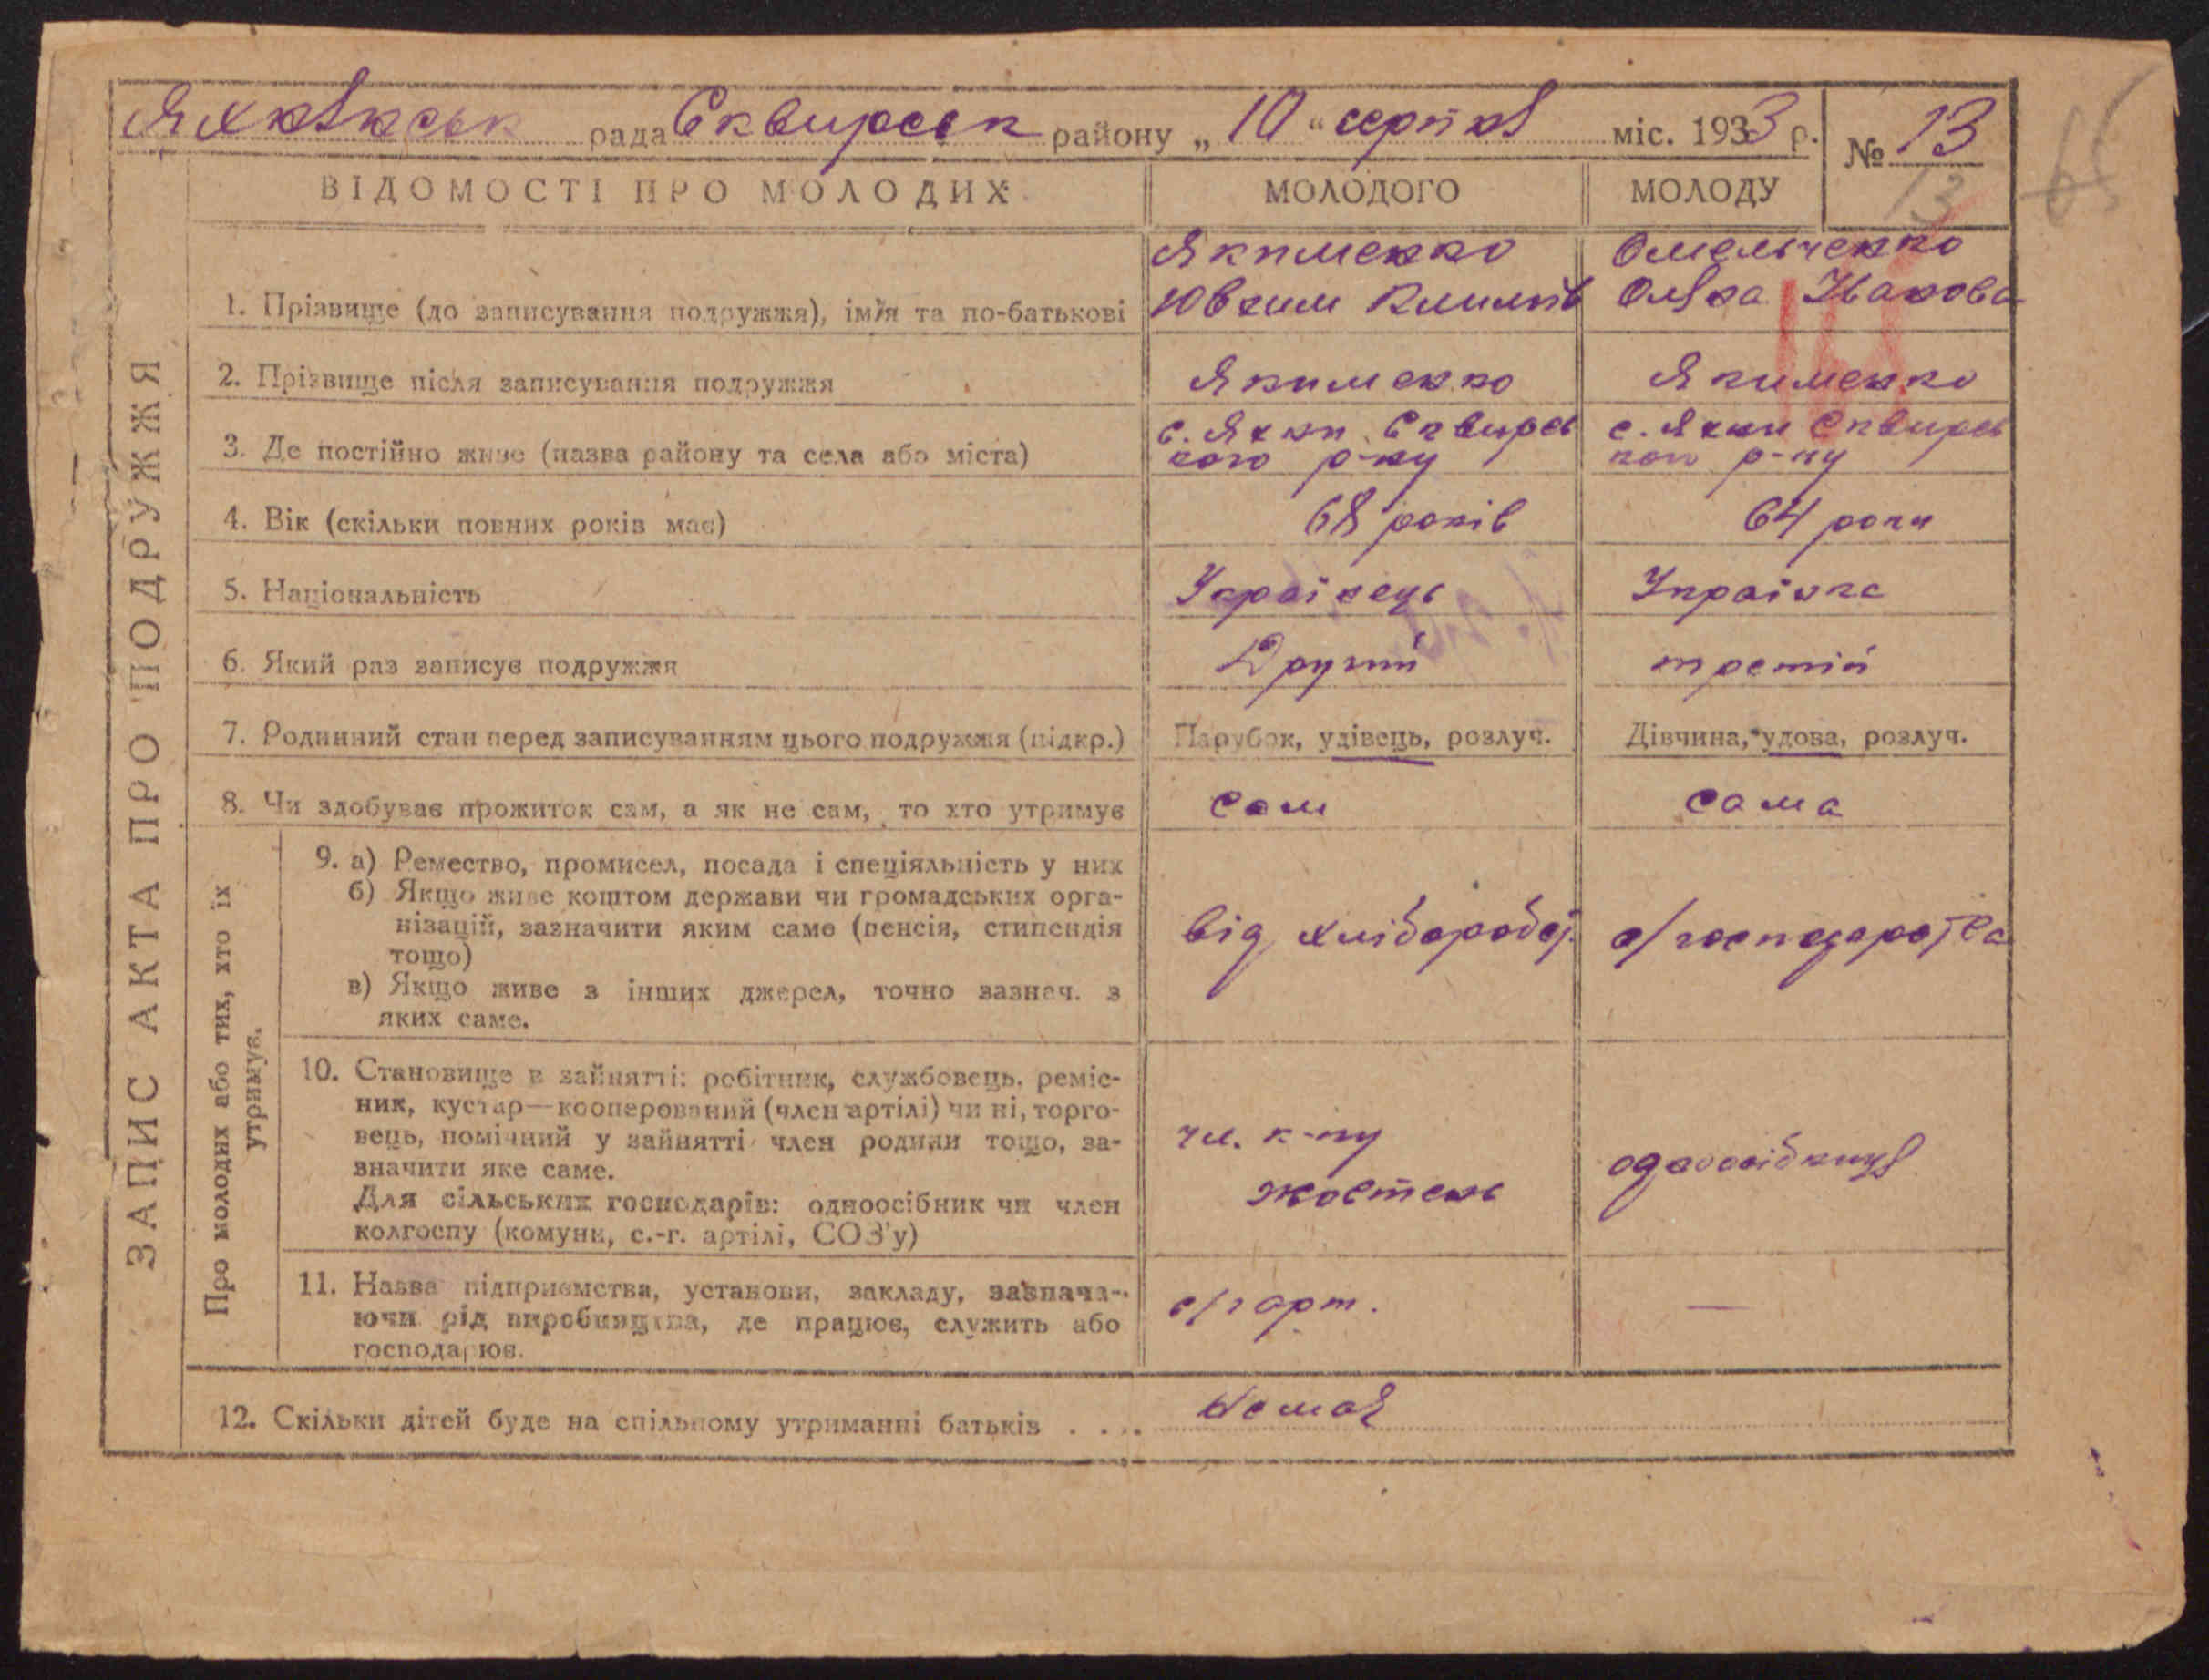 Яхнянськ рада Сквирськ району „ 10 “ серпня міс. 1933 р.
№ 13
13
65
ВІДОМОСТІ ПРО МОЛОДИХ
МОЛОДОГО
МОЛОДУ
ЗАПИС АКТА ПРО ПОДРУЖЖЯ
1. Прізвище (до записування подружжя), ім'я та по-батькові
Якименко
Ювхим Климів
Омельченко
Оляна Іванова
2. Прізвище після записування подружжя
Якименко
Якименко
3. Де постійно живе (назва району та села або міста)
с. Яхни Сквирсь
кого р-ну
с. Яхни Сквирсь
кого р-ну
4. Вік (скільки повних років має)
68 років
64 роки
5. Національність
Українець
Українка
6. Який раз записує подружжя
Другий
третій
7. Родинний стан перед записуванням цього подружжя (підкр.)
Парубок, удівець, розлуч.
Дівчина, удова, розлуч.
8. Чи здобуває прожиток сам, а як не сам, то хто утримує
Сам
Сама
Про молодих або тих, хто їх
утримує.
9. а) Ремество, промисел, посада і спеціяльність у них
б) Якщо живе коштом держави чи громадських орга-
нізацій, зазначити яким саме (пенсія, стипендія
тощо)
в) Якщо живе з інших джерел, точно зазнач. з
яких саме.
від хліборобст.
с/господарства
10. Становище в зайнятті: робітник, службовець, реміс-
ник, кустар—кооперований (член артілі) чи ні, торго-
вець, помічний у зайнятті член родини тощо, за-
значити яке саме.
Для сільських господарів: одноосібник чи член
колгоспу (комуни, с.-г. артілі, СОЗ'у)
чл. к-пу
жовтень
одноосібниця
11. Назва підприємства, установи, закладу, зазнача-
ючи рід виробництва, де працює, служить або
господарює.
с/г арт.
—
12. Скільки дітей буде на спільному утриманні батьків . . . .
Немає